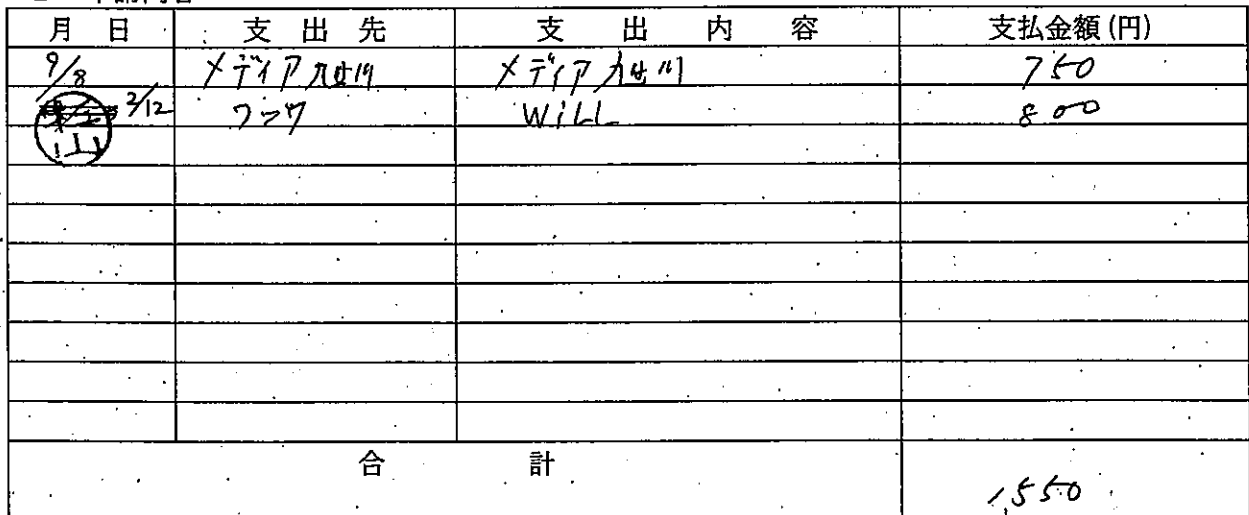 月 日 支 出 先 支 出 内 容 支払金額(円)
9/8 メディア メディア 750
2/12 ワック WiLL 800
合 計
1,550